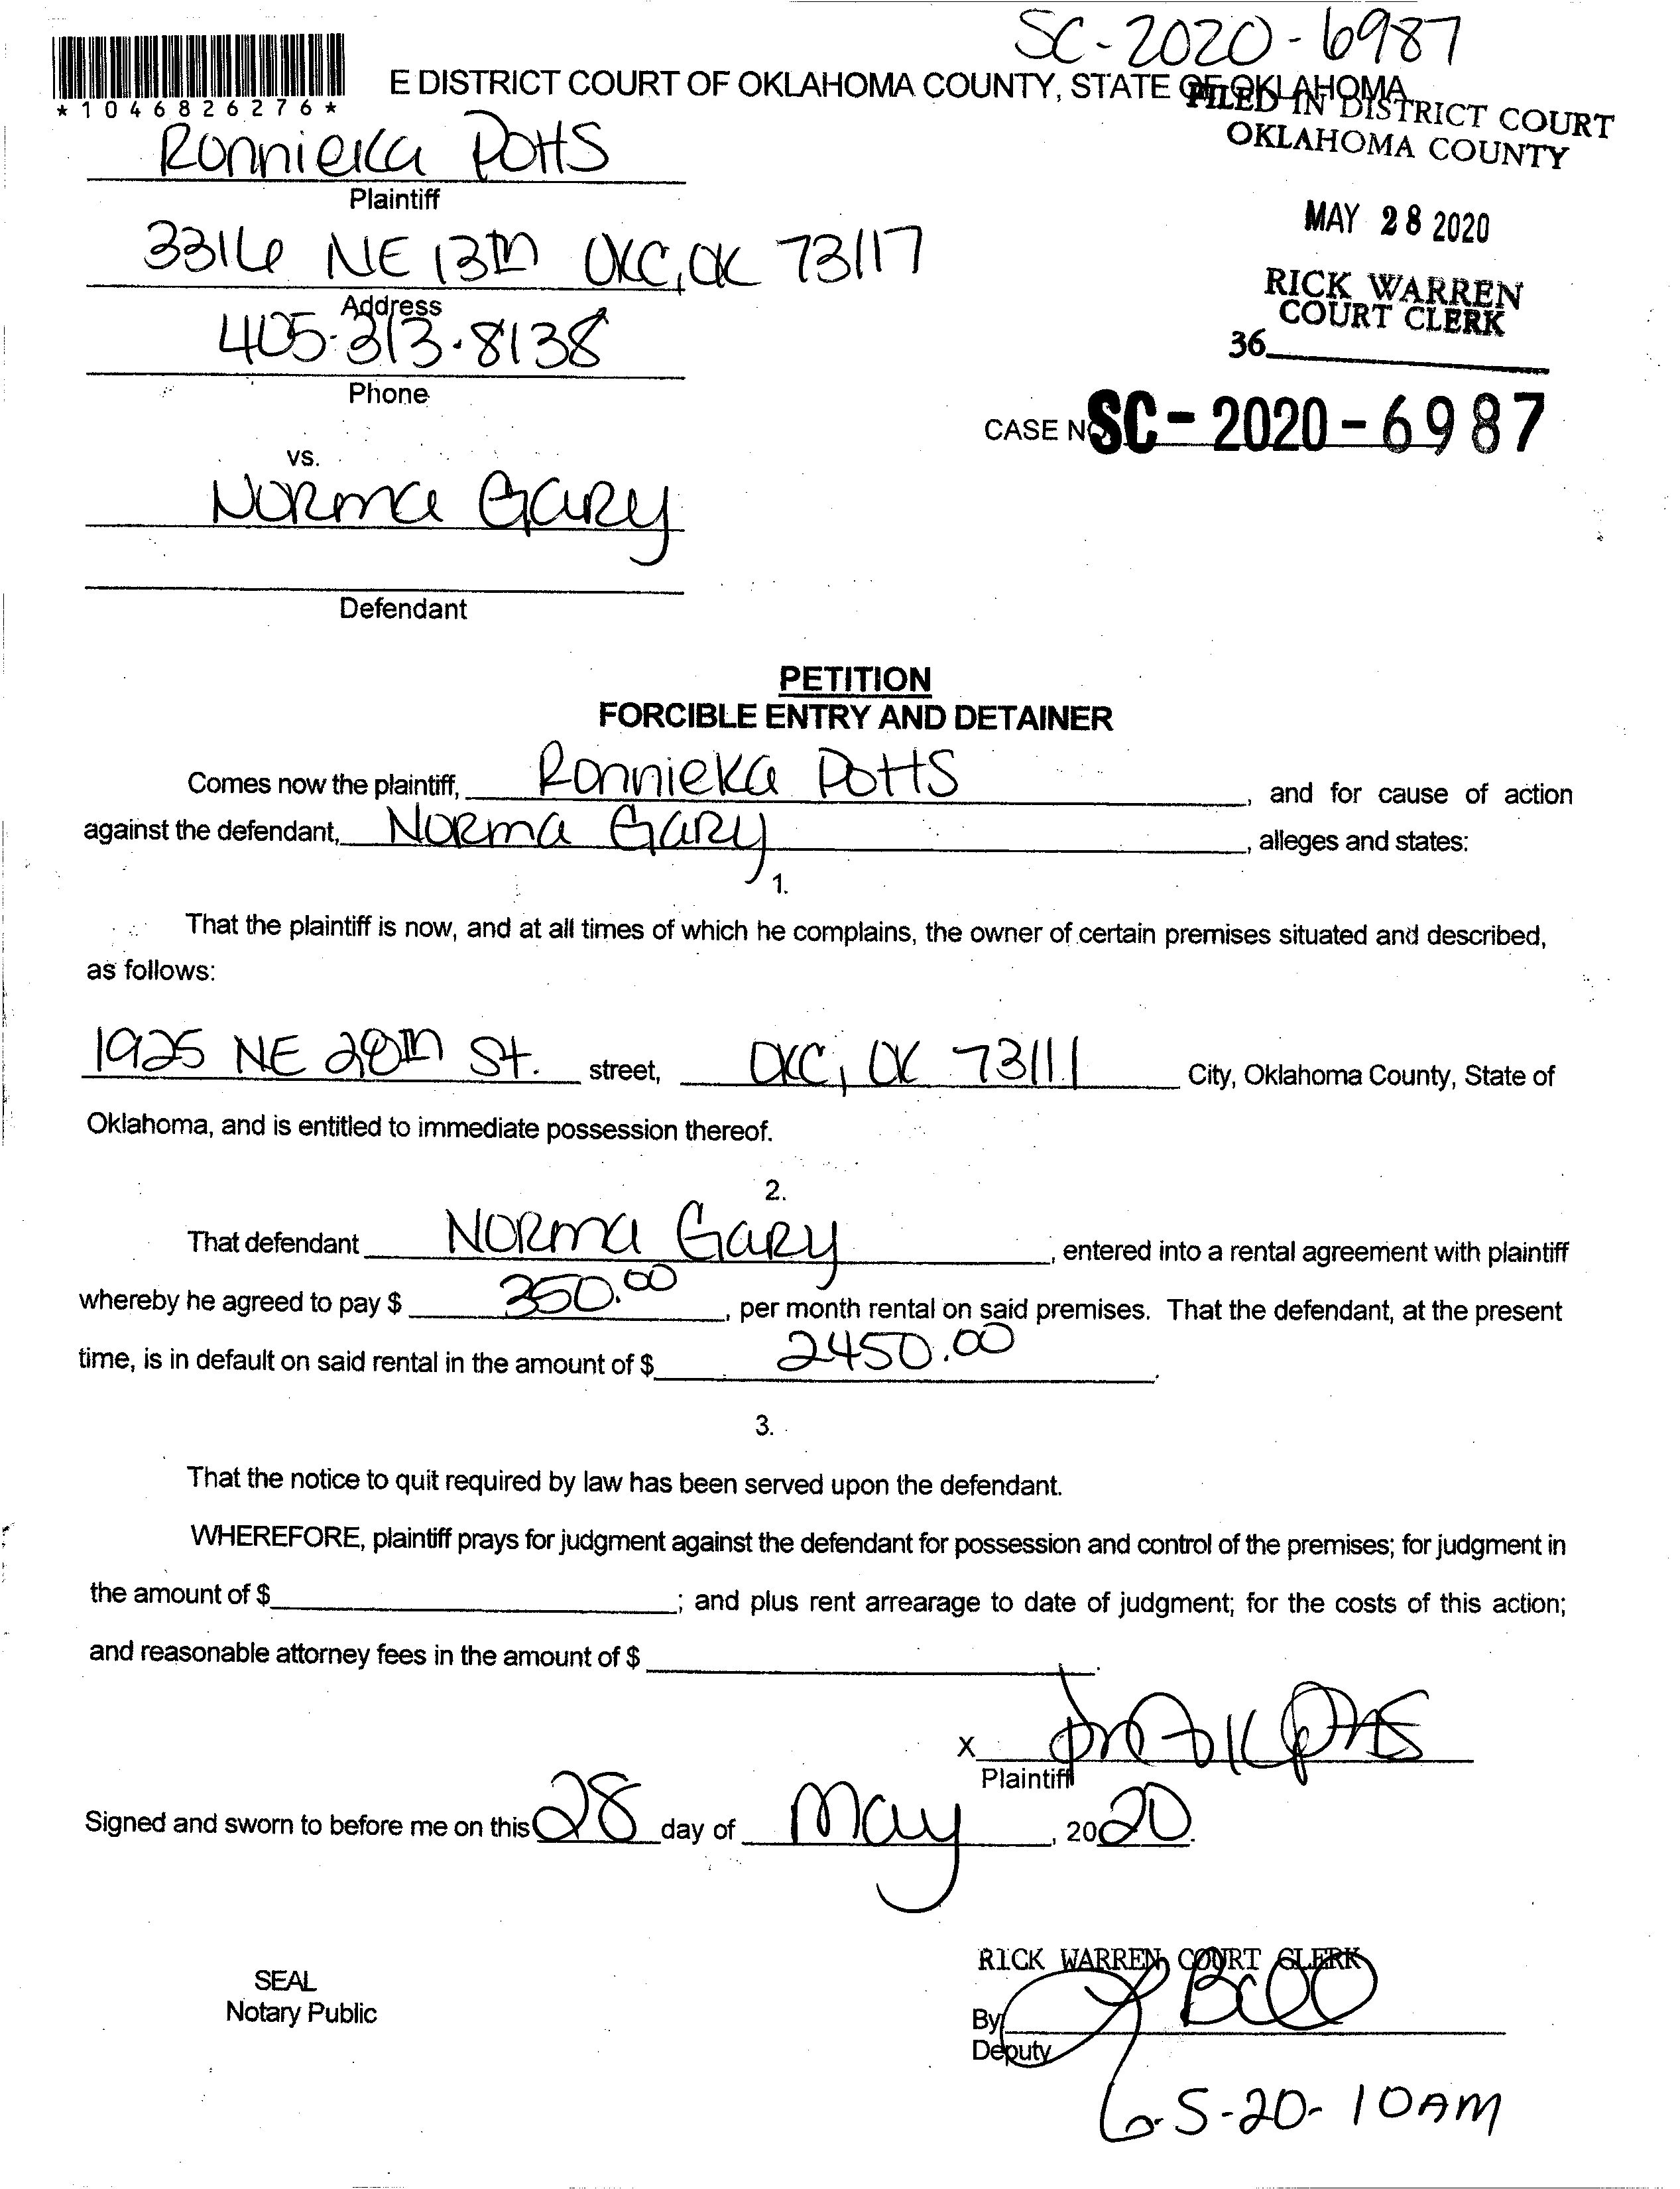 SC-2020-6987
E DISTRICT COURT OF OKLAHOMA COUNTY, STATE OF OKLAHOMA
*1046826276*
FILED IN DISTRICT COURT
OKLAHOMA COUNTY
Ronnieka Potts
Plaintiff
MAY 28 2020
3316 NE 13th OKC, OK 73117
Address
RICK WARREN
COURT CLERK
405-313-8138
36
Phone
CASE NO. SC-2020-6987
vs.
Norma Gary
Defendant
PETITION
FORCIBLE ENTRY AND DETAINER
Comes now the plaintiff, Ronnieka Potts, and for cause of action
against the defendant, Norma Gary, alleges and states:
1.
That the plaintiff is now, and at all times of which he complains, the owner of certain premises situated and described,
as follows:
1925 NE 28th St. street, OKC, OK 73111 City, Oklahoma County, State of
Oklahoma, and is entitled to immediate possession thereof.
2.
That defendant Norma Gary, entered into a rental agreement with plaintiff
whereby he agreed to pay $ 350.00, per month rental on said premises. That the defendant, at the present
time, is in default on said rental in the amount of $ 2450.00.
3.
That the notice to quit required by law has been served upon the defendant.
WHEREFORE, plaintiff prays for judgment against the defendant for possession and control of the premises; for judgment in
the amount of $ ; and plus rent arrearage to date of judgment; for the costs of this action;
and reasonable attorney fees in the amount of $ .
X
Plaintiff
Signed and sworn to before me on this 28 day of May, 2020.
RICK WARREN, COURT CLERK
SEAL
Notary Public
By
Deputy
6-5-20- 10AM